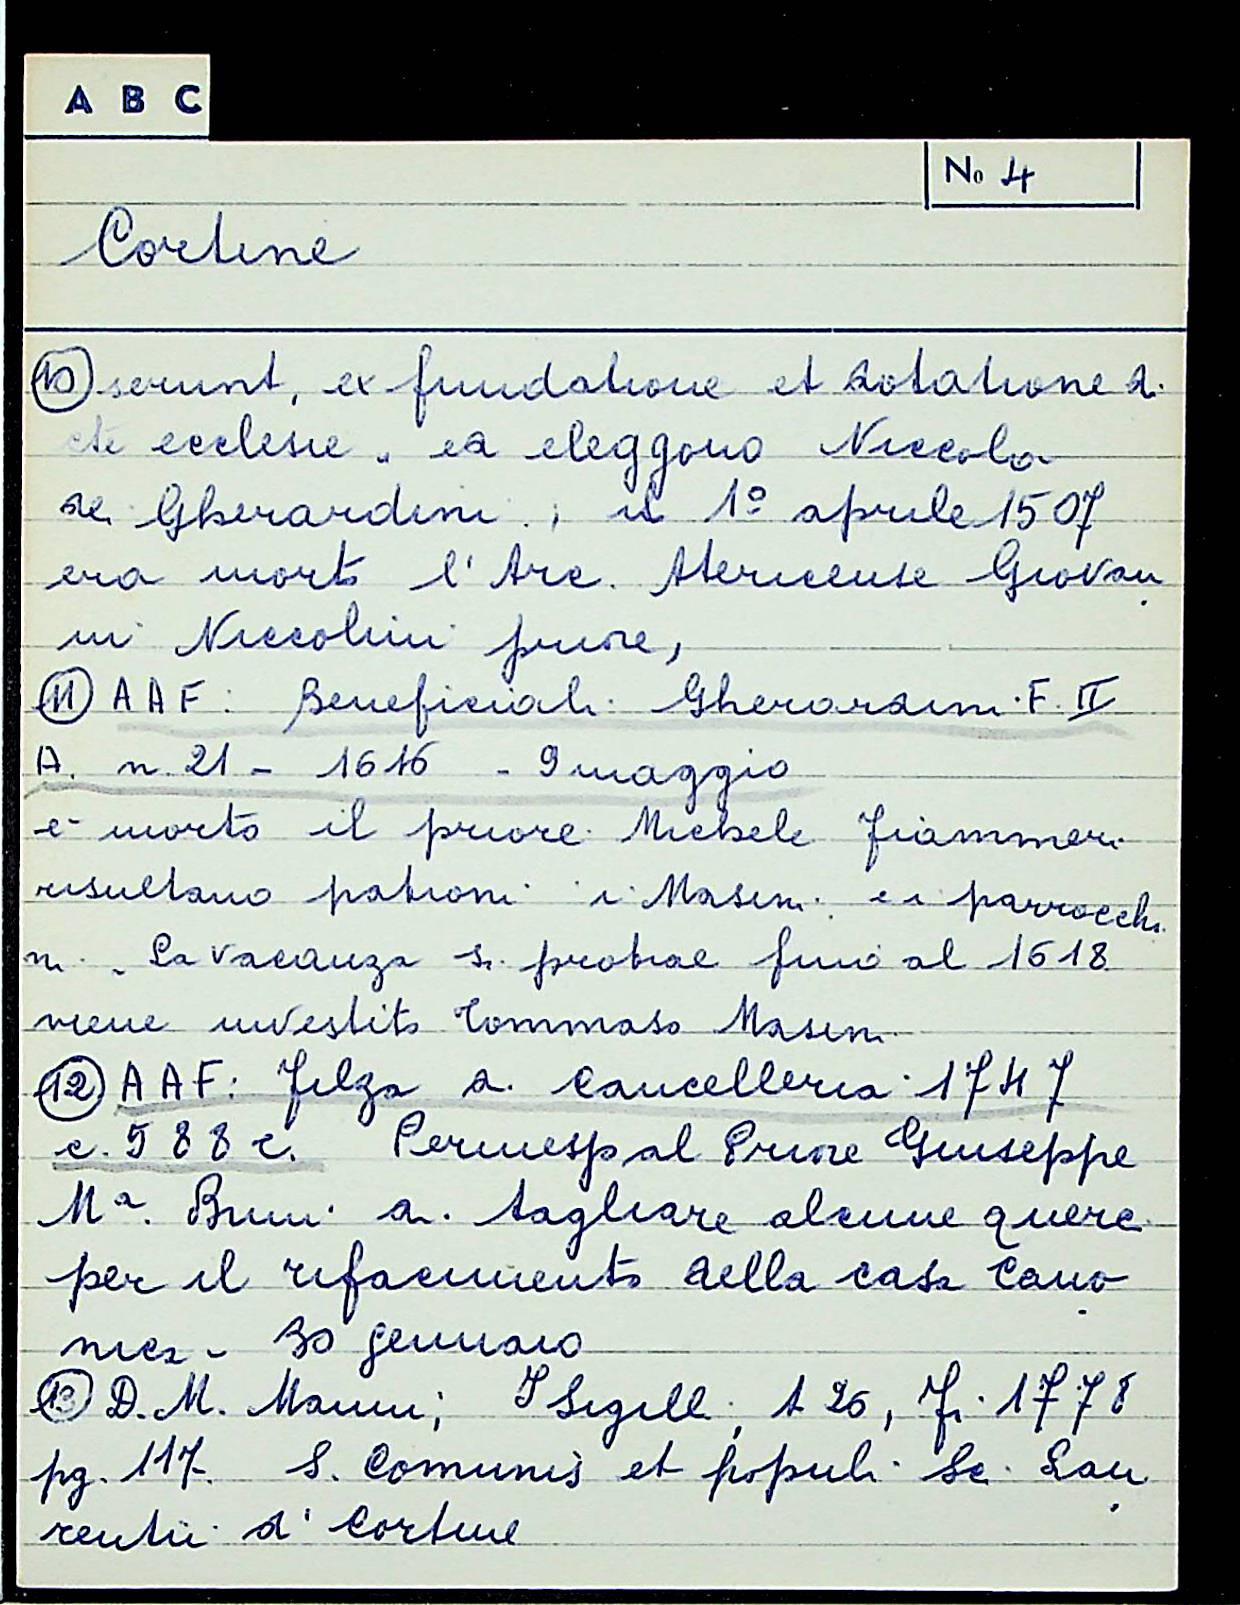 A B C
No 4
Cortine
10 serunt, ex fundatione et dotatione di
cte ecclesie. ed eleggono Niccolo
de Gherardini.; il 1º aprile 1507
era morto l'Arc. Giovan
ni Niccolini priore,
11 AAF: Beneficiali. Gherardini. F. II
A. n. 21 - 1616 - 9 maggio
è morto il priore Michele Fiammeri
risultano patroni i Masini e i parrocchia
ni. La vacanza si protrae fino al 1618
viene investito Tommaso Masini
12 AAF: Filza di Cancelleria. 1747
c. 588 r. Permesso al Priore Giuseppe
Mª. Bruni di tagliare alcune querc
per il rifacimento della casa Cano
nica - 30 gennaio
13 D. M. Manni, I Sigilli, t 26, Fi. 1778
pg. 117. S. Comunis et populi Sc. Lau
rentii d' Cortine